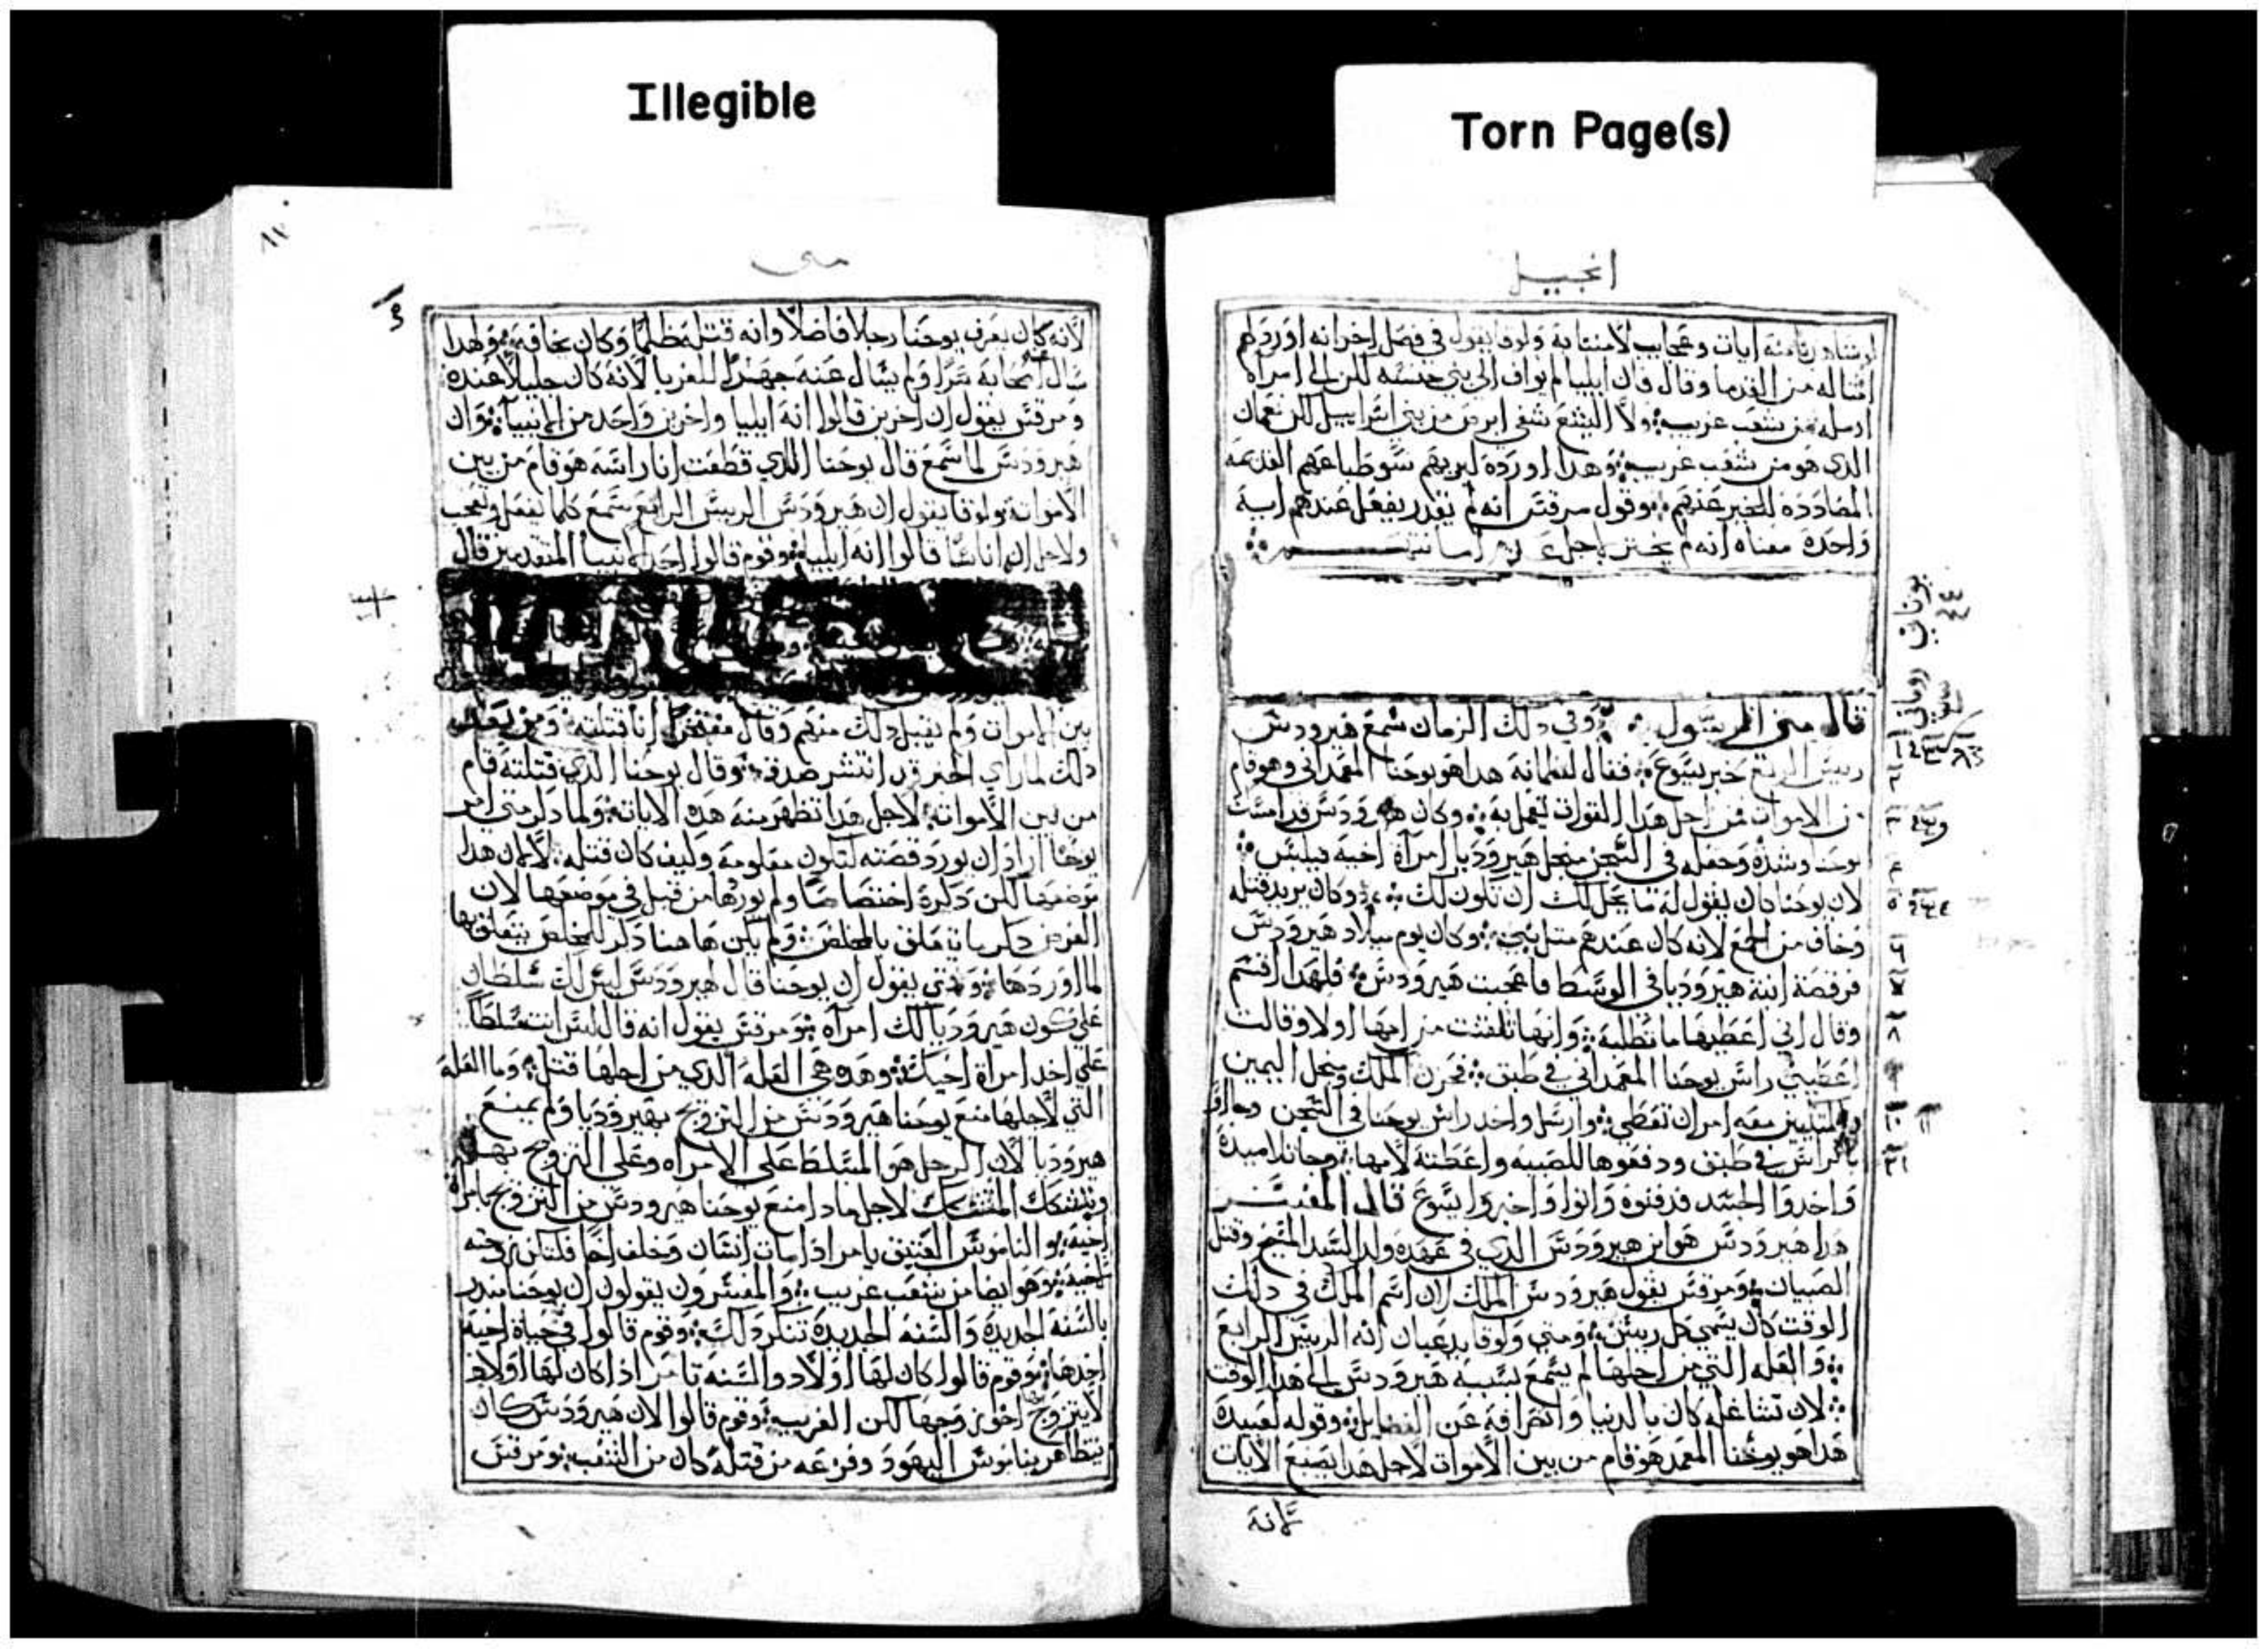 Illegible
Torn Page(s)
انجيل
لو شاهدوا منه ايات وعجايب لامنتابه ولوقا يقول في فصل اخر انه اورد لهم
امثاله من القدما وقال فان ايليا لم يواف الي بني جنسه لكن الي امراه
ارسل من شعب غريب ولا اليشع شفي ابرص من بني اسراييل لكن نعمان
الدي هو من شعب غريب وهدا اورده ليريهم سو طباعهم القديمه
المضادده للخير عندهم وقول مرقس انه لم يقدر يفعل عندهم ايه
واحده معناه انه لم يختر لاجل
قال متي الرسول وفي دلك الزمان سمع هيرودس
رييس الربع خبر يسوع فقال لغلمانه هدا هو يوحنا المعمداني وهو قام
من الاموات من اجل هدا القوات تعمل به وكان هيرودس قد امسك
يوحنا وشده وجعله في السجن من اجل هيروديا امراه اخيه فيلبس
لان يوحنا كان يقول له ما يحل لك ان تكون لك وكان يريد قتله
وخاف من الجمع لانه كان عندهم مثل نبي وكان يوم ميلاد هيرودس
فرقصة ابنة هيروديا في الوسط فاعجبت هيرودس فلهدا اقسم
وقال اني اعطيها ما تطلبه وانها تلقنت من امها اولا وقالت
اعطيني راس يوحنا المعمداني في طبق فحزن الملك ومن اجل اليمين
والمتكيين معه امر ان تعطي وارسل واخد راس يوحنا في السجن وجااو
بالراس في طبق ودفعوها للصبيه واعطته لامها وجا تلاميده
واخدوا الجسد فدفنوه واتوا واخبروا يسوع قال المفسر
هدا هيرودس هو ابن هيرودس الدي في عهده ولد السيد المسيح وقتل
الصبيان ومرقس يقول هيرودس الملك لان اسم الملك في دلك
الوقت كان يسمي كل رييس ومتي ولوقا يدعيان انه الرييس الرابع
والعله التي من اجلها لم يسمع بسيبه هيرودس الي هدا الوقت
لان تشاغله كان بالدنيا وانصرافه عن الفضايل وقوله لعبيده
هدا هو يوحنا المعمد هو قام من بين الاموات لاجل هدا يصنع الايات
لانه
يوناني
روماني
متي
٨٢
لانه كان يعرف يوحنا رجلا فاضلا وانه قتله ظلما وكان يخافه ولهدا
سال اصحابه سرا ولم يسال عنه جهرا للغربا لانه كان جليلا عنده
ومرقس يقول ان اخرين قالوا انه ايليا واخرين واحد من الانبيا وان
هيرودس لما سمع قال يوحنا الدي قطعت انا راسه هو قام من بين
الاموات ولوقا يقول ان هيرودس الرييس الرابع سمع كلما يفعل وتعجب
ولاجل ان اناسا قالوا انه ايليا وقوم قالوا احد الانبيا المتقدمين قال
بين الاموات ولم يقبل دلك منهم وقال مفتخرا انا قتلته ومن بعد
دلك لما راي الخبر قد انتشر صدق وقال يوحنا الدي قتلته قام
من بين الاموات لاجل هدا تظهر منه هده الايات ولما دكر متي امر
يوحنا اراد ان يورد قصته لتكون معلومه وكيف كان قتله لا لان هدا
موضعها لكن دكره اختصاصا ولم يوردها من قبل في موضعها لان
الغرض دكر ما يتعلق بالمخلص ولم يكن هاهنا دكر للمخلص يتعلق بها
لما اوردها ومتي يقول ان يوحنا قال لهيرودس ليس لك سلطان
علي كون هيروديا لك امراه ومرقس يقول انه قال ليس انت مسلطا
علي اخد امراة اخيك وهده هي العله الدي من اجلها قتل وما العله
التي لاجلها منع يوحنا هيرودس من التزويج بهيروديا ولم يمنع
هيروديا لان الرجل هو المسلط علي الامراه وعلي التزويج بها
ويتشكك المتشكك لاجل مادا منع يوحنا هيرودس من التزويج بامراة
اخيه والناموس العتيق يامر ادا مات انسان وخلف اخا فلتكن زوجته
لاخيه وهو ايضا من شعب غريب والمفسرون يقولون ان يوحنا مندر
بالسنه الجديده والسنه الجديدة تنكر دلك وقوم قالوا في حياة اخيه
اخدها وقوم قالوا كان لها اولاد والسنه تامر ادا كان لها اولاد
لا يتزوج اخو زوجها لكن الغريب وقوم قالوا لان هيرودس كان
يتظاهر بناموس اليهود وفزعه من قتله كان من الشعب ومرقس